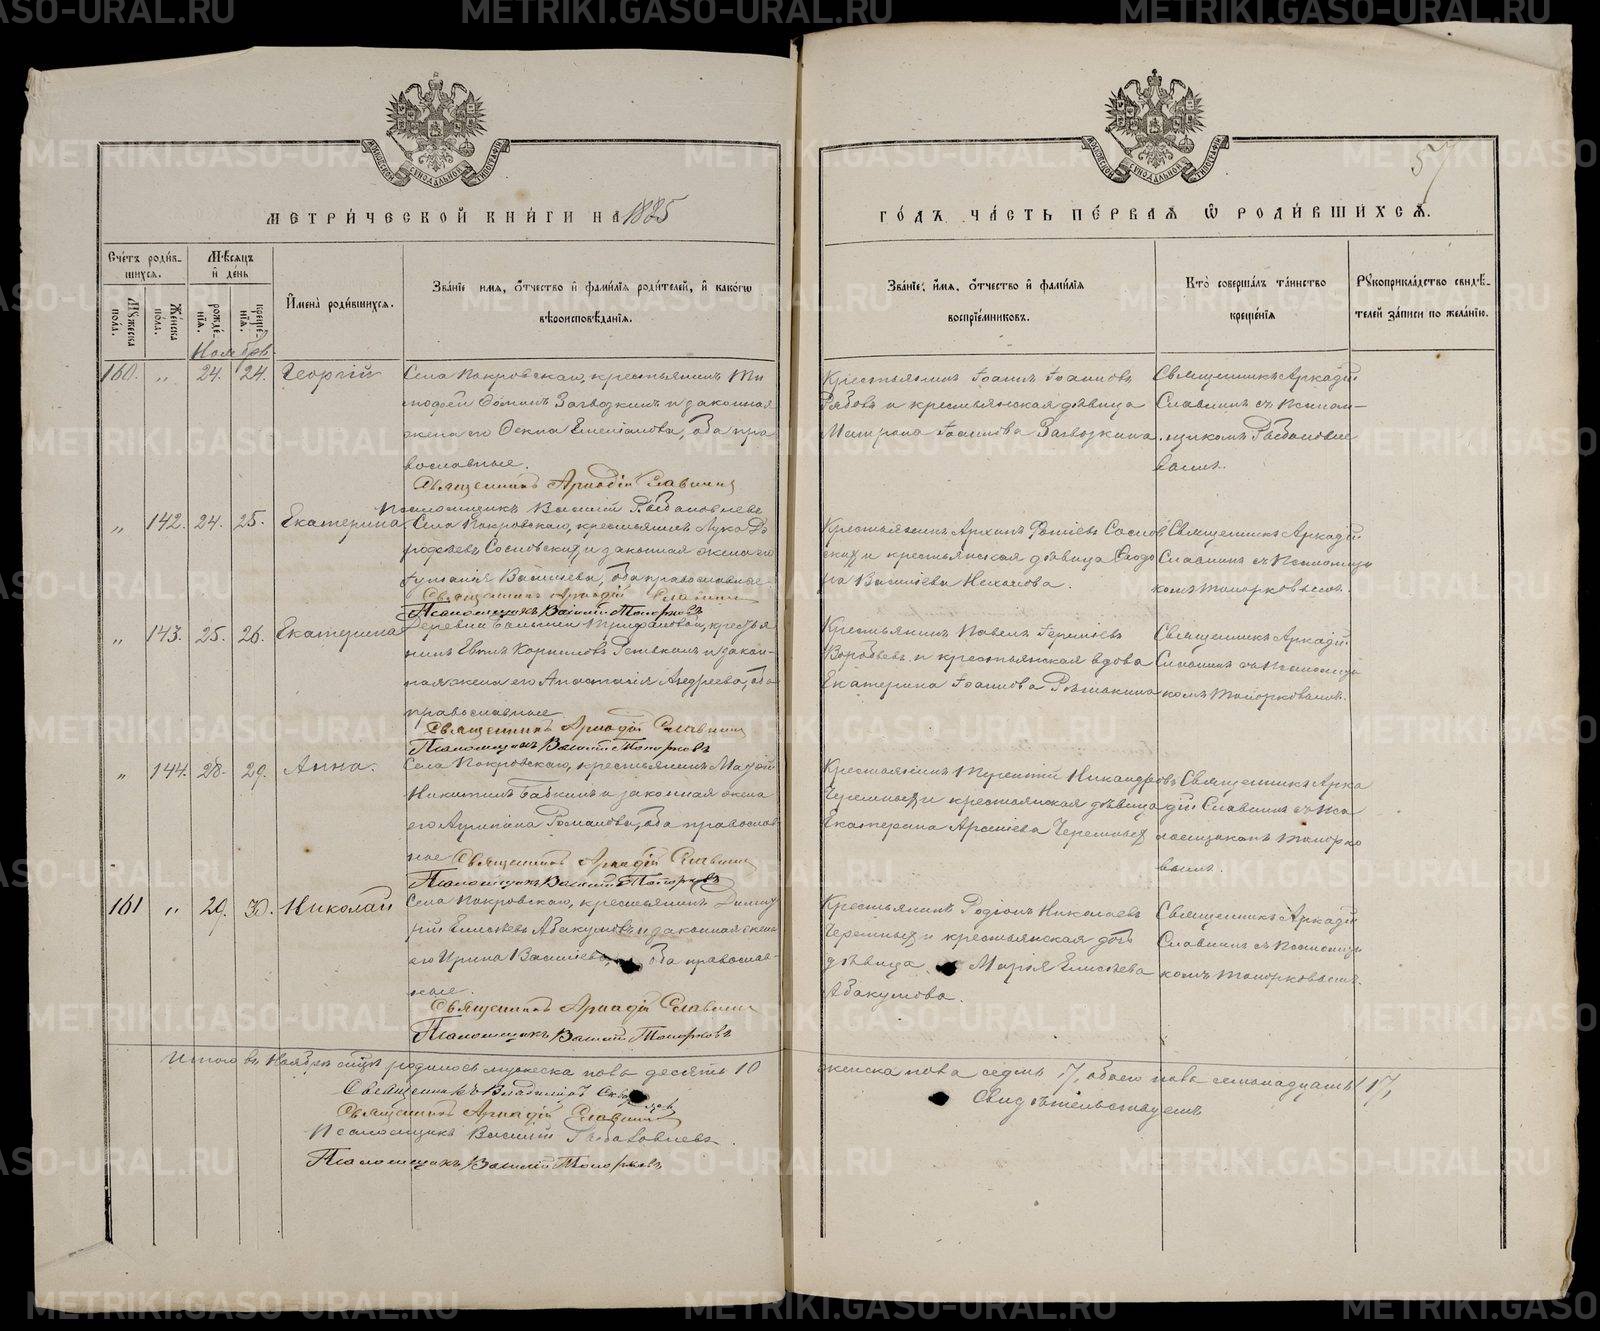 МЕТРИ́ЧЕСКОЙ КНИ́ГИ НА 1885
Сче́тъ роди́вшихся.
Му́жеска по́ла.
Же́нска по́ла.
Мѣ́сяцъ и҆ де́нь
рожде́нїя.
креще́нїя.
И҆мена̀ роди́вшихся.
Зва́нїе и҆мя, ѻ҆́тчество и҆ фами́лїя роди́телей, и҆ како́гѡ вѣроисповѣ́данїя.
Ноябрь.
160. „ 24. 24. Георгій
Села Покровскаго, крестьянинъ Ти
мофей Ѳоминъ Загвозкинъ и законная
жена его Ѳекла Емеліанова, оба пра
вославные.
Священникъ Аркадій Славнинъ
Псаломщикъ Василій
„ 142. 24. 25. Екатерина
Села Покровскаго, крестьянинъ Лука До
рофѣевъ Сосновскихъ и законная жена его
Іуліанія Васильева, оба православные
Священникъ Аркадій Славнинъ
Псаломщикъ Василій Топорковъ
„ 143. 25. 26. Екатерина
Деревни Большой Трифановой, крестья
нинъ Корниловъ и закон-
ная жена его Анастасія Андреева, оба
православные.
Священникъ Аркадій Славнинъ
Псаломщикъ Василій Топорковъ
„ 144. 28. 29. Анна.
Села Покровскаго, крестьянинъ
Никитинъ Бабкинъ и законная жена
его Агрипина Романова, оба православ
ные
Священникъ Аркадій Славнинъ
Псаломщикъ Василій Топорковъ
161 „ 29. 30. Николай
Села Покровскаго, крестьянинъ Димит
рій Елисѣевъ Абакумовъ и законная жена
его Ирина Васильева, оба православ-
ные.
Священникъ Аркадій Славнинъ
Псаломщикъ Василій Топорковъ
Итого въ Ноябрѣ м҃цѣ родилось мужеска пола десять 10
Священникъ Владиміръ
Священникъ Аркадій Славнинъ
Псаломщикъ Василій
Псаломщикъ Василій Топорковъ
57
ГО́ДЪ ЧА́СТЬ ПЕ́РВАЯ Ѡ҆ РОДИ́ВШИХСЯ.
Зва́нїе, и҆́мя, ѻ҆́тчество и҆ фами́лїя воспрїе́мниковъ.
Кто̀ соверша́лъ та́инство креще́нїя
Рꙋкоприкла́дство свидѣ́телей за́писи по жела́нїю.
Крестьянинъ Іоаннъ Іоанновъ
Рябовъ и крестьянская дѣвица
Матрона Іоаннова Загвозкина.
Священникъ Аркадій
Славнинъ съ Псалом-
щикомъ
Крестьянинъ Архипъ Соснов
скихъ и крестьянская дѣвица Ѳеодо
ра Васильева
Священникъ Аркадій
Славнинъ съ Псаломщи
комъ Топорковымъ.
Крестьянинъ Павелъ
Воробьевъ и крестьянская вдова
Екатерина Іоаннова
Священникъ Аркадій
Славнинъ съ Псаломщи
комъ Топорковымъ.
Крестьянинъ Терентій Никандровъ
Черемныхъ и крестьянская дѣвица
Екатерина Арсеніева Черемныхъ
Священникъ Арка
дій Славнинъ съ Пса
ломщикомъ Топорко
вымъ.
Крестьянинъ Родіонъ Николаевъ
Черемныхъ и крестьянская дочь
дѣвица Марія Елисѣева
Абакумова.
Священникъ Аркадій
Славнинъ съ Псаломщи
комъ Топорковымъ.
женска пола седмь 7, обоего пола семнадцать 17,
Свидѣтельствуемъ
METRIKI.GASO-URAL.RU